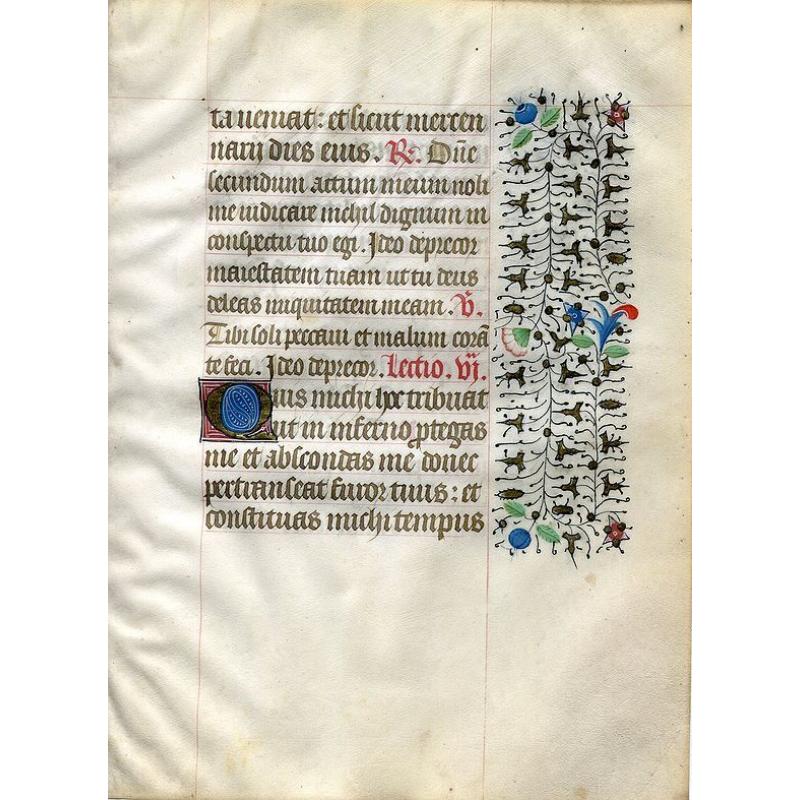 ta veniat: et sicut mercen
narij dies eius. R. Dñe
secundum actum meum noli
me iudicare nichil dignum in
conspectu tuo egi. Ideo deprecor
maiestatem tuam ut tu deus
deleas iniquitatem meam. V.
Tibi soli peccaui et malum corā
te feci. Ideo deprecor. Lectio. vj.
Quis michi hoc tribuat
ut in inferno ꝓtegas
me et abscondas me donec
pertranseat furor tuus: et
constituas michi tempus